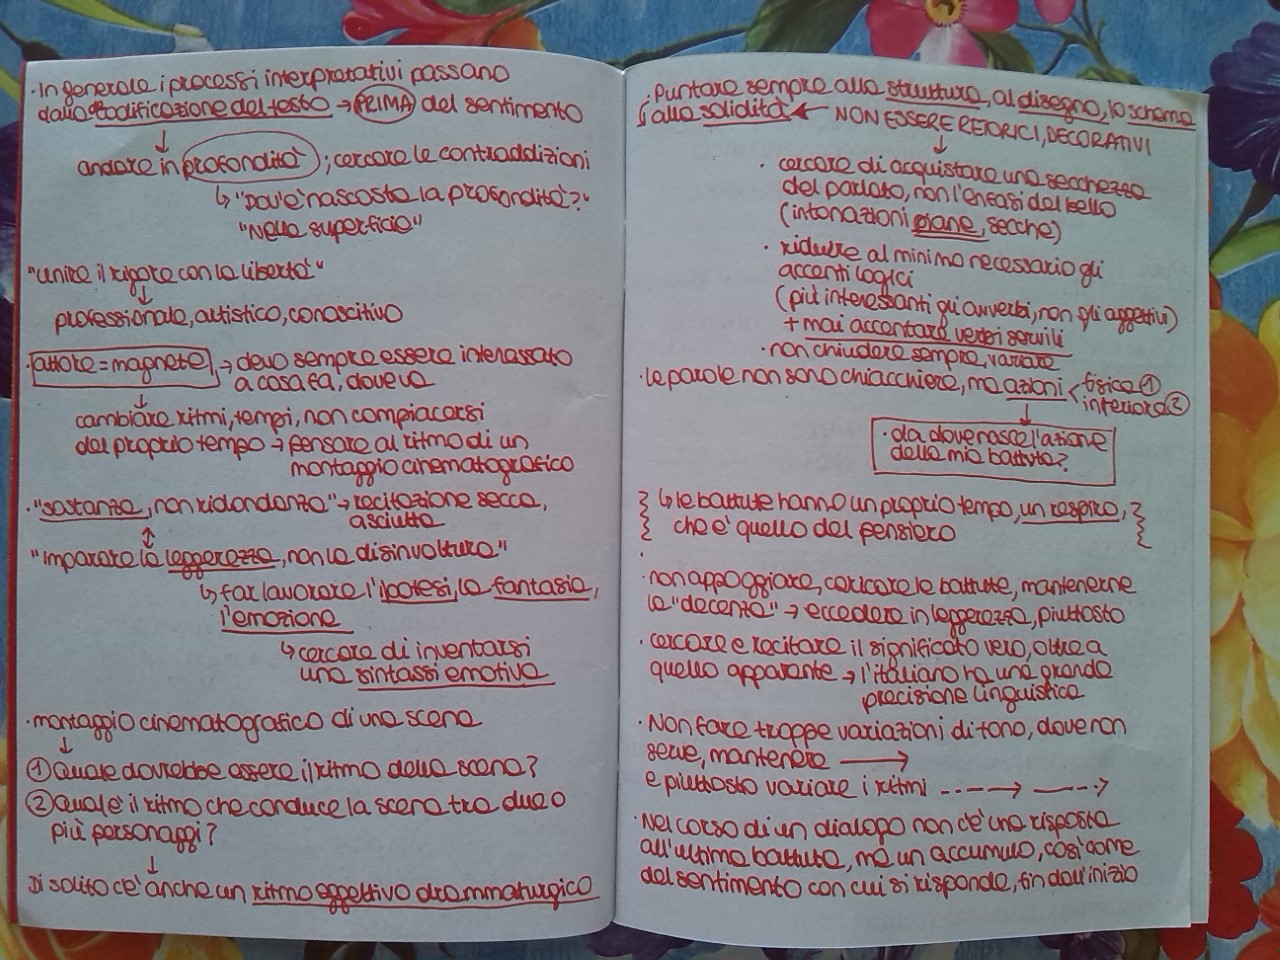 ·In generale i processi interpretativi passano
dalla codificazione del testo → PRIMA del sentimento
↓
andare in profondità ; cercare le contraddizioni
↳ "Dov'è nascosta la profondità?"
"Nella superficie"
"unire il rigore con la libertà"
↓
professionale, artistico, conoscitivo
·attore = magnete → devo sempre essere interessato
a cosa fa, dove va
↓
cambiare ritmi, tempi, non compiacersi
del proprio tempo → pensare al ritmo di un
montaggio cinematografico
·"sostanza, non ridondanza" → recitazione secca,
asciutta
↕
"imparare la leggerezza, non la disinvoltura"
↳ far lavorare l'ipotesi, la fantasia,
l'emozione
↳ cercare di inventarsi
una sintassi emotiva
·montaggio cinematografico di una scena
↓
① Quale dovrebbe essere il ritmo della scena?
② Qual è il ritmo che conduce la scena tra due o
più personaggi?
↓
Di solito c'è anche un ritmo oggettivo drammaturgico
·Puntare sempre alla struttura, al disegno, lo schema
alla solidità ← NON ESSERE RETORICI, DECORATIVI
↓
· cercare di acquistare una secchezza
del parlato, non l'enfasi del bello
(intonazioni piane, secche)
· ridurre al minimo necessario gli
accenti logici
(più interessanti gli avverbi, non gli aggettivi)
+ mai accentare verbi servili
· non chiudere sempre, variare
·le parole non sono chiacchiere, ma azioni < fisica ①
interiore ②
↓
· da dove nasce l'azione
della mia battuta?
↳ le battute hanno un proprio tempo, un respiro,
che è quello del pensiero
·
·non appoggiare, caricare le battute, mantenerne
la "decenza" → eccedere in leggerezza, piuttosto
· cercare e recitare il significato vero, oltre a
quello apparente → l'italiano ha una grande
precisione linguistica
·Non fare troppe variazioni di tono, dove non
serve, mantenere →
e piuttosto variare i ritmi -·--→ -·--→
·Nel corso di un dialogo non c'è una risposta
all'ultima battuta, ma un accumulo, così come
del sentimento con cui si risponde, fin dall'inizio